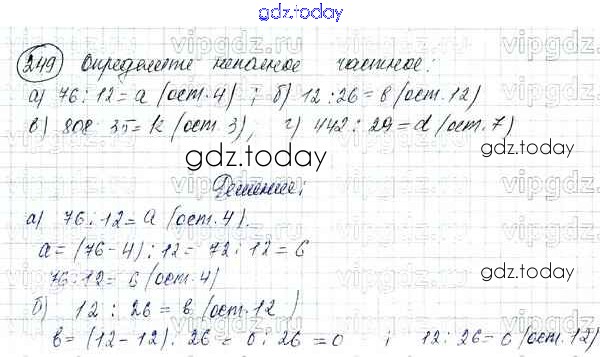 gdz.today
249 Определите неполное частное:
а) 76 : 12 = a (ост. 4) ; б) 12 : 26 = в (ост. 12)
в) 808 : 35 = k (ост. 3), г) 442 : 29 = d (ост. 7)
gdz.today
Решение:
а) 76 : 12 = a (ост. 4).
a = (76 - 4) : 12 = 72 : 12 = 6
76 : 12 = 6 (ост. 4)
gdz.today
б) 12 : 26 = в (ост. 12)
в = (12 - 12) : 26 = 0 : 26 = 0 ; 12 : 26 = 0 (ост. 12)